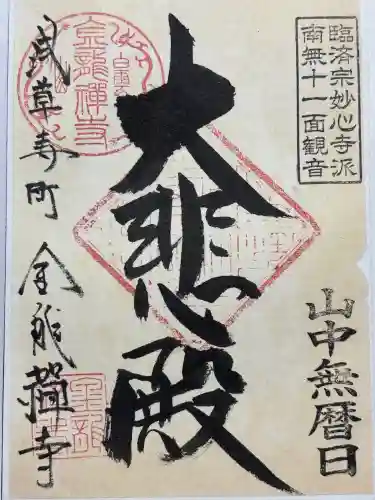 臨済宗妙心寺派
南無十一面観音
山中無暦日
大悲殿
浅草寿町 金龍禅寺
金龍禅寺